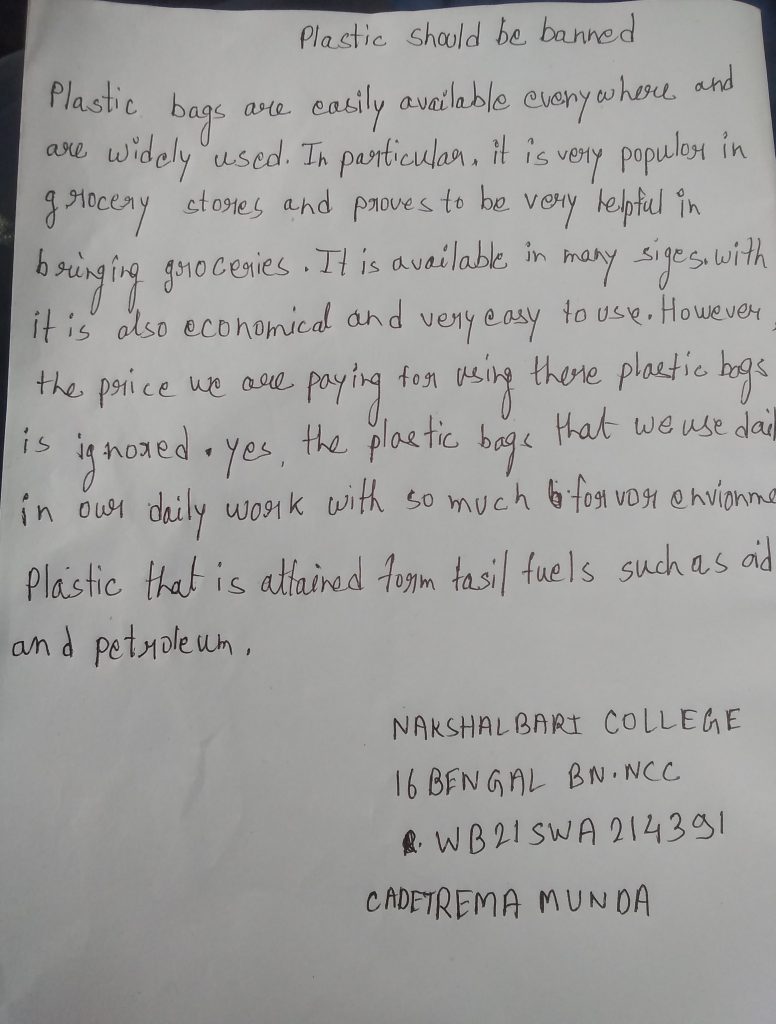 Plastic should be banned
Plastic bags are easily available everywhere and
are widely used. In particular, it is very popular in
grocery stores and proves to be very helpful in
bringing groceries. It is available in many siges. with
it is also economical and very easy to use. However,
the price we are paying for using there plastic bags
is ignored. yes, the plastic bags that we use dail
in our daily work with so much for vor envionme
Plastic that is attained form fasil fuels such as oid
and petroleum.
NAKSHALBARI COLLEGE
16 BENGAL BN. NCC
WB21SWA214391
CADETREMA MUNDA